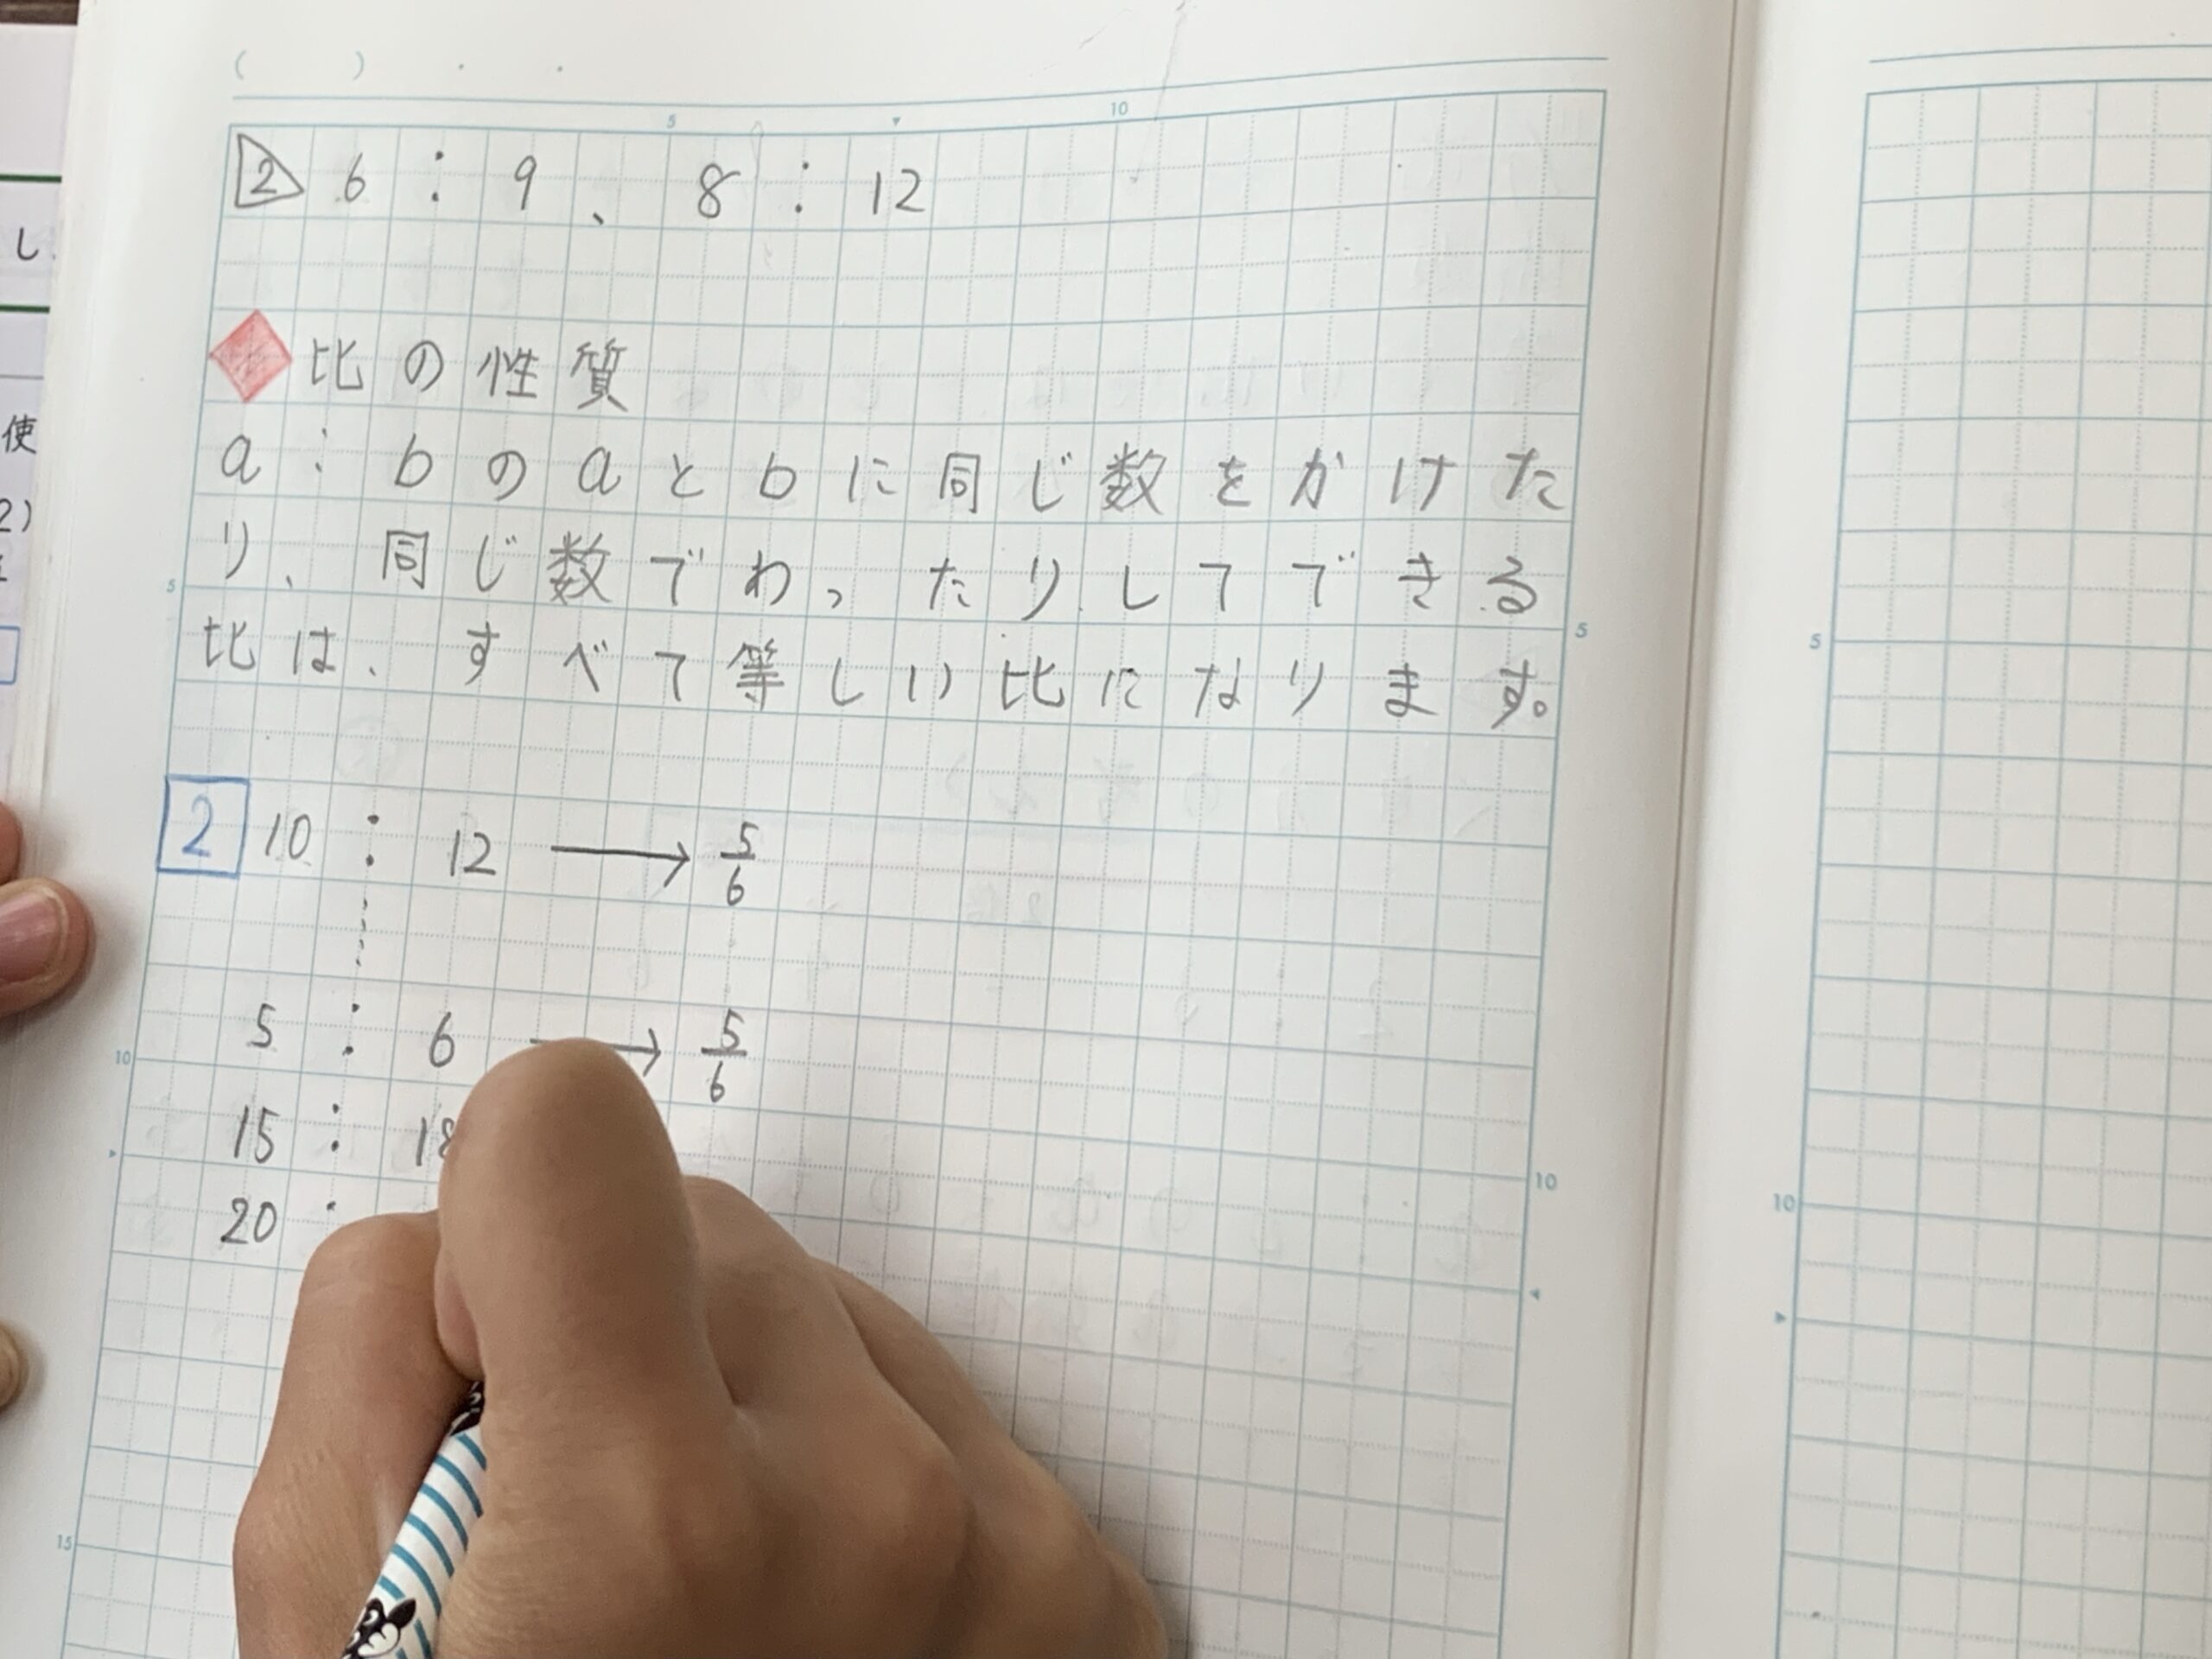 ( ) ・ ・
5 10
2 6 : 9 、 8 : 12
比の性質
a : b の a と b に同じ数をかけた
り、同じ数でわったりしてできる
比は、すべて等しい比になります。
2 10 : 12 → 5/6
5 : 6 → 5/6
15 : 18
20 :
5
10
15
5
10
5
10
し
使
2)